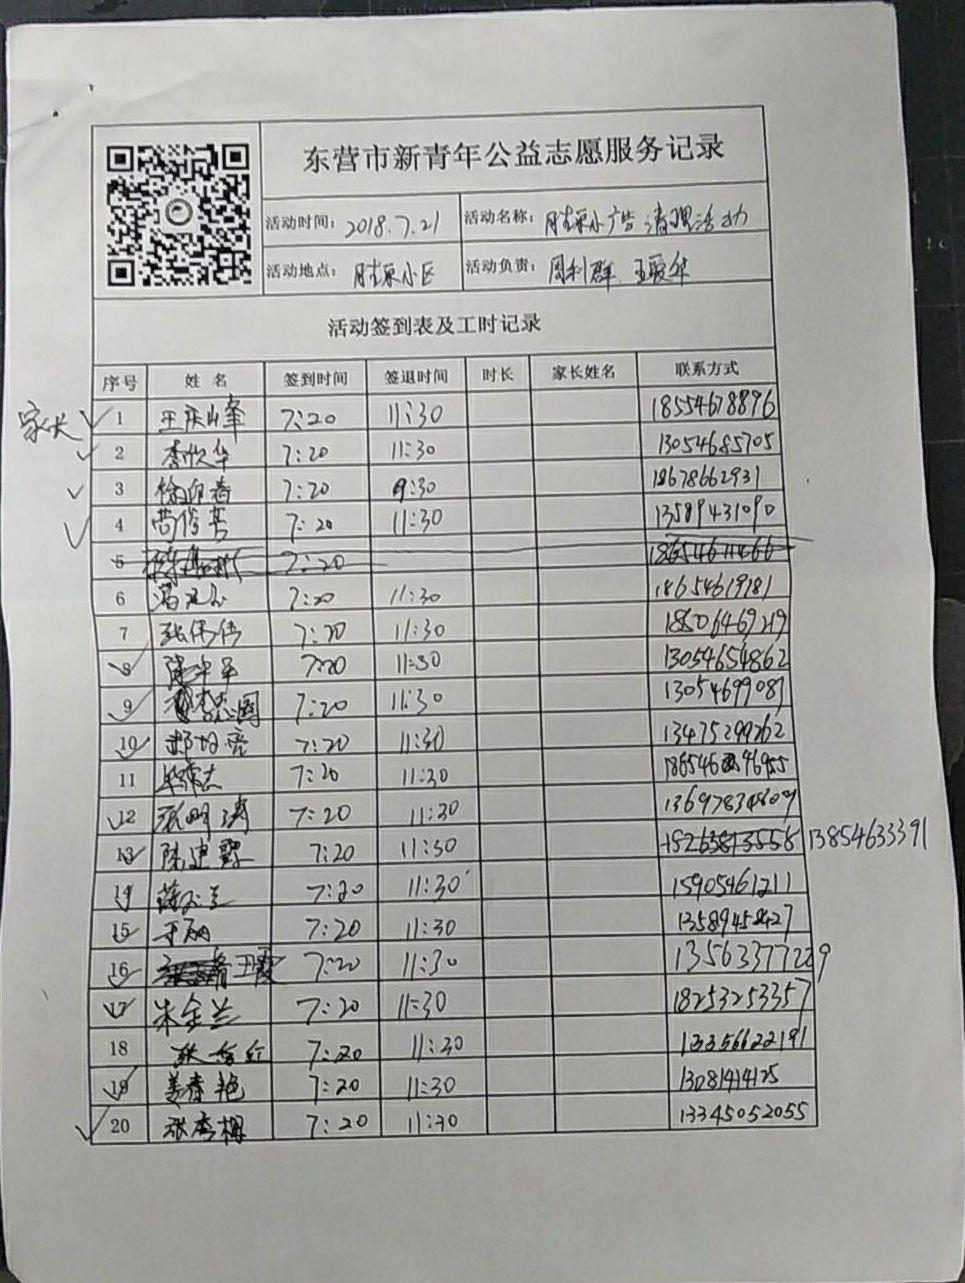 东营市新青年公益志愿服务记录
活动时间: 2018.7.21 活动名称: 胜采小广告清理活动
活动地点: 胜采小区 活动负责: 周利群 王爱华
活动签到表及工时记录
序号 姓名 签到时间 签退时间 时长 家长姓名 联系方式
家长 1 王庆峰 7:20 11:30 18554678896
2 李欣华 7:20 11:30 13054685705
3 徐迎春 7:20 9:30 18678662931
4 7:20 11:30 13589431090
5 7:20
6 7:20 11:30 18654619181
7 张伟伟 7:20 11:30 18506469219
8 7:20 11:30 13054654862
9 7:20 11:30 13054699087
10 7:20 11:30 13475299262
11 7:20 11:30
12 张明涛 7:20 11:30
13 陈建霞 7:20 11:30 15263813558 13854633391
14 蒋玉兰 7:20 11:30 15905461211
15 于丽 7:20 11:30
16 王霞 7:20 11:30
17 朱金兰 7:20 11:30 18253253357
18 张 红 7:20 11:30 13356622191
19 姜春艳 7:20 11:30 13081414125
20 张秀梅 7:20 11:30 13345052055